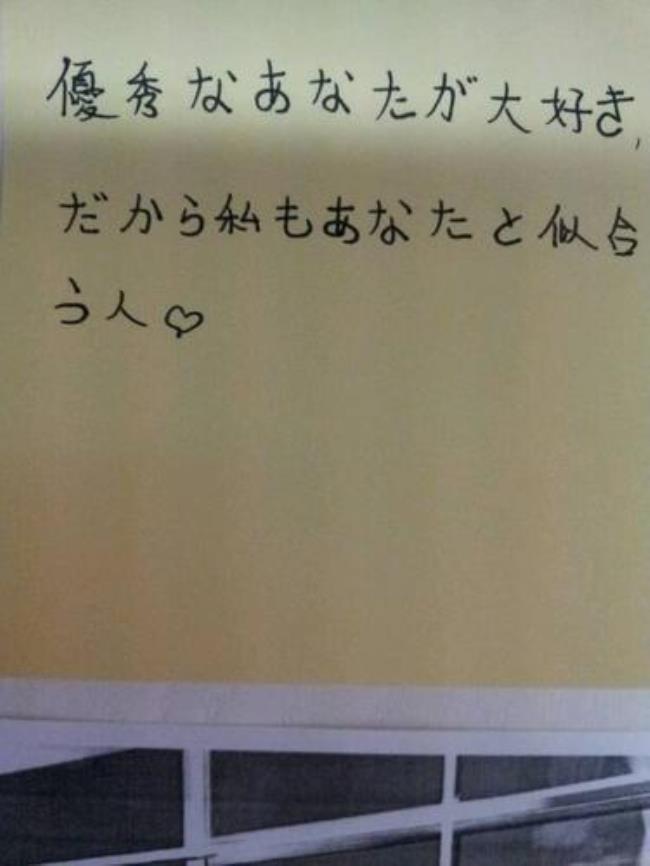 優秀なあなたが大好き,
だから私もあなたと似合
う人♡